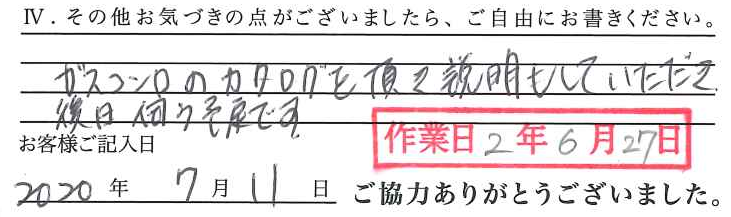 Ⅳ．その他お気づきの点がございましたら、ご自由にお書きください。
ガスコンロのカタログを頂き説明もしていただき
後日伺う予定です
お客様ご記入日
作業日2年6月27日
2020年 7月 11日 ご協力ありがとうございました。